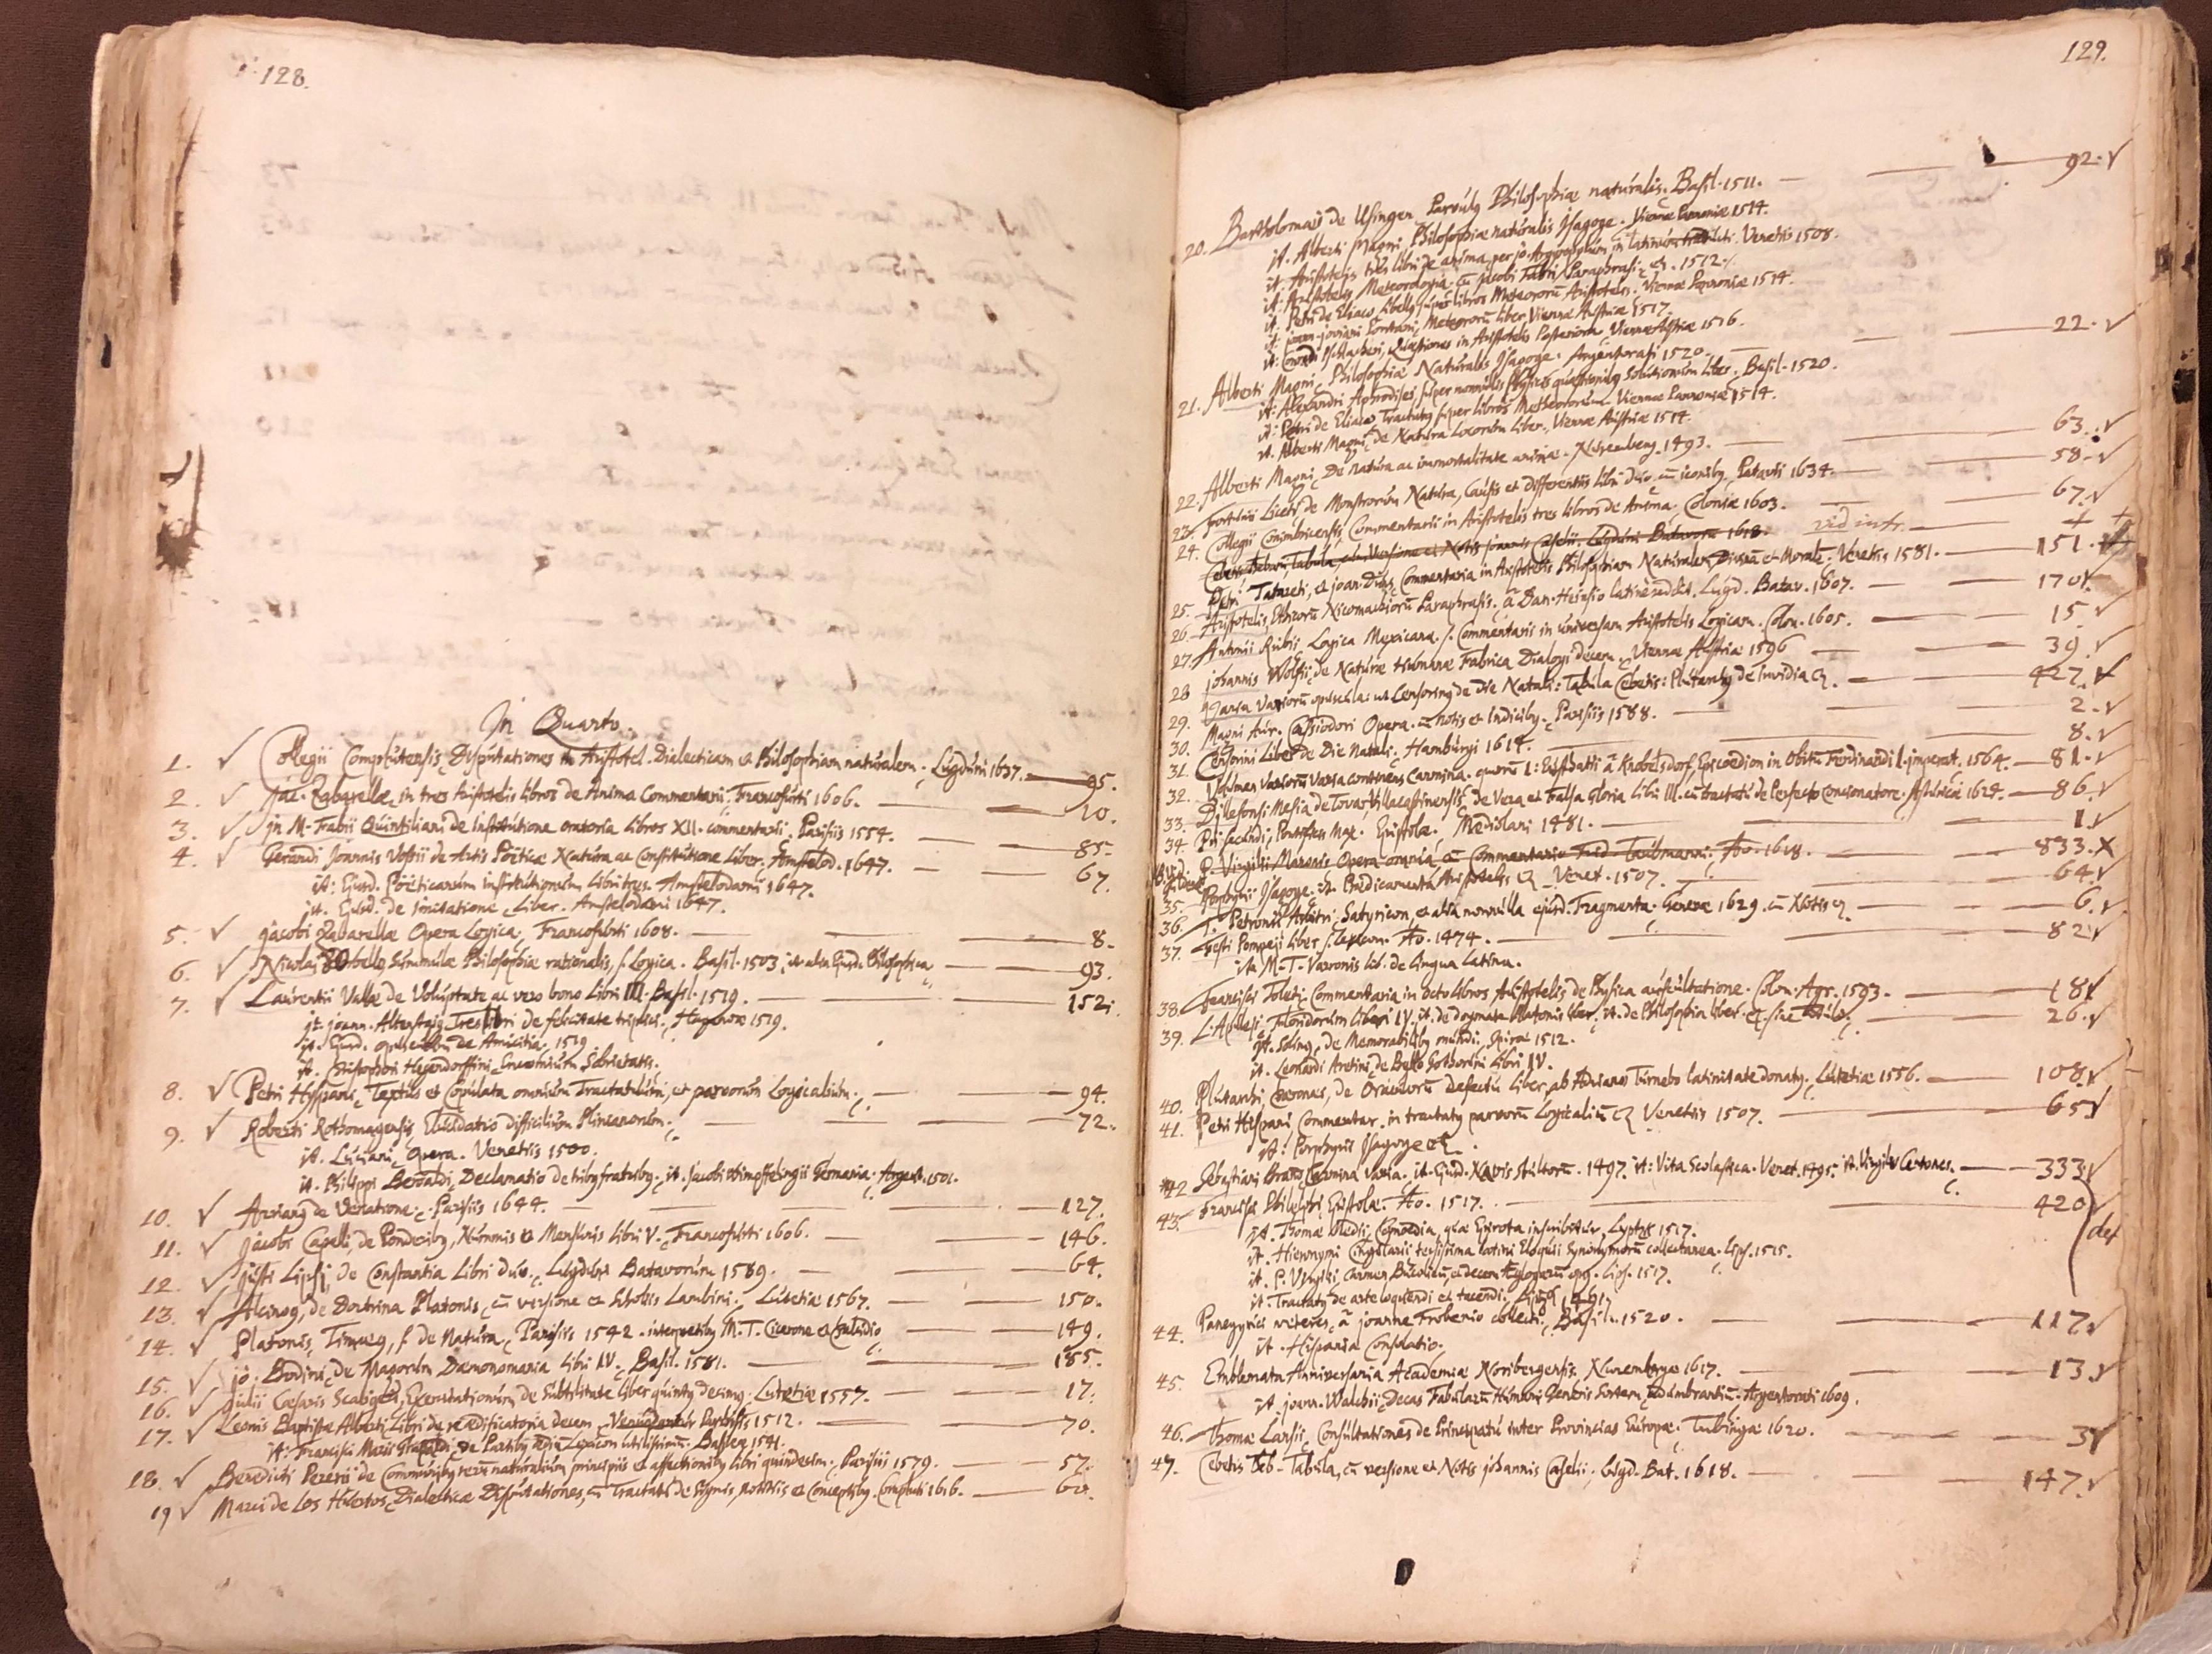 128.
In Quarto.
1. √ Collegii Complutensis, Disputationes in Aristotel. Dialecticam et Philosophiam naturalem. Lugduni 1637. — 95.
2. √ Jac. Zabarellæ, in tres Aristotelis libros de Anima Commentarii. Francofurti 1606. — 10.
3. √ in M. Fabii Quintiliani de Institutione oratoria libros XII. commentarii. Parisiis 1554. — 85.
4. √ Gerardi Joannis Vossii de Artis Poëticæ Natura ac Constitutione Liber. Amstelod. 1647. — 67.
it: Ejusd. Poëticarum institutionum libri tres. Amstelodami 1647.
it. Ejusd. de Imitatione Liber. Amstelodami 1647.
5. √ Jacobi Zabarellæ Opera Logica, Francofurti 1608. — 8.
6. √ Nicolai Dorbelli Summulæ Philosophiæ rationalis, s. Logica. Basil. 1503. it alia Ejusd. Philosophica — 93.
7. √ Laurentii Vallæ de Voluptate ac vero bono Libri III. Basil. 1519. — 152.
it. Joann. Altenstaig, Tres libri de felicitate triplici, Hagenoæ 1519.
it. Ejusd. opusculum de Amicitia, 1519.
it. Christophori Hegendorffini, Encomium Sobrietatis.
8. √ Petri Hyspani, Textus et Copulata omnium Tractatuum, et parvorum Logicalium. — 94.
9. √ Roberti Rothomagensis, Elucidatio difficilium Plinianorum. — 72.
it. Luciani, Opera. Venetiis 1500.
it. Philippi Beroaldi, Declamatio de tribus fratribus. it. Jacobi Wimpffelingii Germania. Argent. 1501.
10. √ Arrianus de Venatione. Parisiis 1644. — 127.
11. √ Jacobi Capelli, de Ponderibus, Nummis et Mensuris Libri V. Francofurti 1606. — 146.
12. √ Justi Lipsii de Constantia Libri duo. Lugduni Batavorum 1589. — 64.
13. √ Alcinous, de Doctrina Platonis, cū versione et Scholiis Lambini. Lutetiæ 1567. — 150.
14. √ Platonis, Timæus, s. de Natura, Parisiis 1542. interpretibus M. T. Cicerone et Chalcidio — 149.
15. √ Jo. Bodini, de Magorum Dæmonomania Libri IV. Basil. 1581. — 185.
16. √ Julii Cæsaris Scaligeri, Exercitationum, de Subtilitate Liber quintus decimus. Lutetiæ 1557. — 17.
17. √ Leonis Baptistæ Alberti Libri de re ædificatoria decem. Parisiis, 1512. — 70.
it: Francisci Marii Grapaldi, de Partibus ædiū Lexicon utilissimum. Basileæ 1541.
18. √ Benedicti Pererii de Communibus rerū naturalium principiis et affectionibus libri quindecim. Parisiis 1579. — 57.
19 √ Marci de Los Huertos, Dialecticæ Disputationes, cū Tractatu de Signis, notitiis et Conceptibus. Compluti 1616. — 60.
129.
20. Bartholomæi de Usingen Parvulus Philosophiæ naturalis. Basil. 1511. — 92. √
it. Alberti Magni, Philosophiæ naturalis Isagoge. Viennæ Pannoniæ 1514.
it. Aristotelis tres libri de anima, per Jo. Argyropylum in latinum traducti. Venetiis 1508.
it. Aristotelis Meteorologia, cū Jacobi Fabri Paraphrasi, etc. 1512.
it. Petri de Eliaco libellus super libros Meteororū Aristotelis. Viennæ Pannoniæ 1514.
it. Joann. Joviani Pontani, Meteororū liber, Viennæ Austriæ 1517.
it: Conradi, Quæstiones in Aristotelis Posteriora, Viennæ Austriæ 1516.
21. Alberti Magni, Philosophiæ Naturalis Isagoge. Argentorati 1520. — 22. √
it: Alexandri Aphrodisei, super nonnullis Physicis quæstionibus Solutionum liber. Basil. 1520.
it: Petri de Eliaco Tractatus super libros Metheororum. Viennæ Pannoniæ 1514.
it. Alberti Magni, de Natura Locorum Liber, Viennæ Austriæ 1514.
22. Alberti Magni, De Natura ac immortalitate animæ. Nuremberg. 1493. — 63. √
23. Fortunii Liceti de Monstrorum Natura, Causis et differentiis libri duo, cū iconibus, Patavii 1634. — 58. √
24. Collegii Conimbricensis, Commentarii in Aristotelis tres libros de Anima, Coloniæ 1603. — 67. √
Cebetis Thebani Tabula, cum Versione et Notis Joannis Caselii. Lugduni Batavorū 1618. vid infr. — + +
25. Petri Tatareti, et Joan. Duns, Commentaria in Aristotelis Philosophiam Naturalem, Divinā et Moralē. Venetiis 1581. — 151.
26. Aristotelis, Ethicorū Nicomachiorū Paraphrasis. à Dan. Heinsio latinè reddita. Lugd. Batav. 1607. — 170 √
27. Antonii Rubii, Logica Mexicana, s. Commentarii in universam Aristotelis Logicam. Colon. 1605. — 15. √
28 Johannis Wolfii, de Naturæ Humanæ Fabrica Dialogi decem. Viennæ Austriæ 1596 — 39. √
29. Varia Variorū opuscula: ut Censorinus de Die Natali: Tabula Cebetis: Plutarchus de Invidia etc. — 427. √
30. Magni Aur. Cassiodori Opera. cū notis et Indicibus. Parisiis 1588. — 2. √
31. Censorini Liber de Die Natali. Hamburgi 1614. — 8. √
32. Volumen Variorū Varia continens Carmina. quorū 1: Eustathii à Knobelsdorf, Epicoedion in Obitū Ferdinandi I. imperat. 1564. — 81. √
33. Dillefonsi Mesia de Tovar Villacastinensis, de Vera et Falsa Gloria Libri III. cū tractatu de Perfecto concionatore. 1624. — 86. √
34. Pii Secundi, Pontificis Max. Epistolæ. Mediolani 1481. — 1. √
P. Virgilii Maronis Opera omnia, cū Commentario Frid. Taubmanni. Ao. 1618. — 833. X
35. Porphyrii Isagoge. it. Prædicamenta Aristotelis etc. Venet. 1507. — 64. √
36. T. Petronii Arbitri Satyricon, et alia nonnulla ejusd. Fragmenta. Genevæ 1629. cū Notis etc. — 6. √
37. Festi Pompeji liber s. Lexicon. Ao. 1474. — 82 √
it. M. T. Varronis lib. de lingua latina.
38. Francisci Toleti, Commentaria in octo libros Aristotelis de Physica auscultatione. Colon. Agr. 1593. — 18 √
39. L. Apuleji, Floridorum libri IV. it. de dogmate Platonis liber. it. de Philosophia liber. etc. — 26. √
it. Solinus, de Memorabilibus mundi, Spiræ 1512.
it. Leonardi Aretini, de Bello Gothorum Libri IV.
40. Plutarchi, Chæroneæ, de Oraculorū Defectu Liber, ab Adriano Turnebo latinitate donatus. Lutetiæ 1556. — 108. √
41. Petri Hispani Commentar. in tractatus parvorū Logicaliū etc. Venetiis 1507. — 65 √
it: Porphyrii Isagoge etc.
42 Sebastiani Brand, Carmina Varia. it. Ejusd. Navis stultorū. 1497. it: Vita Scolastica. Venet. 1495. it. Virgilii Centones. — 333. √
43. Francisci Philelphi, Epistolæ. Ao. 1517. — 420
it. Thomæ Medii, Comoedia, quæ Epirota inscribitur, Lyptzk 1517.
it. Hieronymi Cingularii tersissima latini Eloquii Synonymorū collectanea. Lips. 1515.
it. P. Virgilii, Carmen Bucolicū, decem Æglogarū opus. Lips. 1517.
it. Tractatus de arte loquendi et tacendi. 1491.
def
44. Panegyrici veteres, à Joanne Frobenio collecti, Basil. 1520. — 117. √
it. Hispaniæ Consolatio.
45. Emblemata Anniversaria Academiæ Noribergensis. Nurembergæ 1617. — 13. √
it. Joann. Walchii, Decas Fabularū Humani Generis Sortem, adumbrantiū. Argentorati 1609.
46. Thomæ Lansii, Consultationes de Principatu inter Provincias Europæ. Tubingæ 1620. — 3 √
47. Cebetis Theb. Tabula, cū versione et Notis Johannis Caselii. Lugd. Bat. 1618. — 147. √